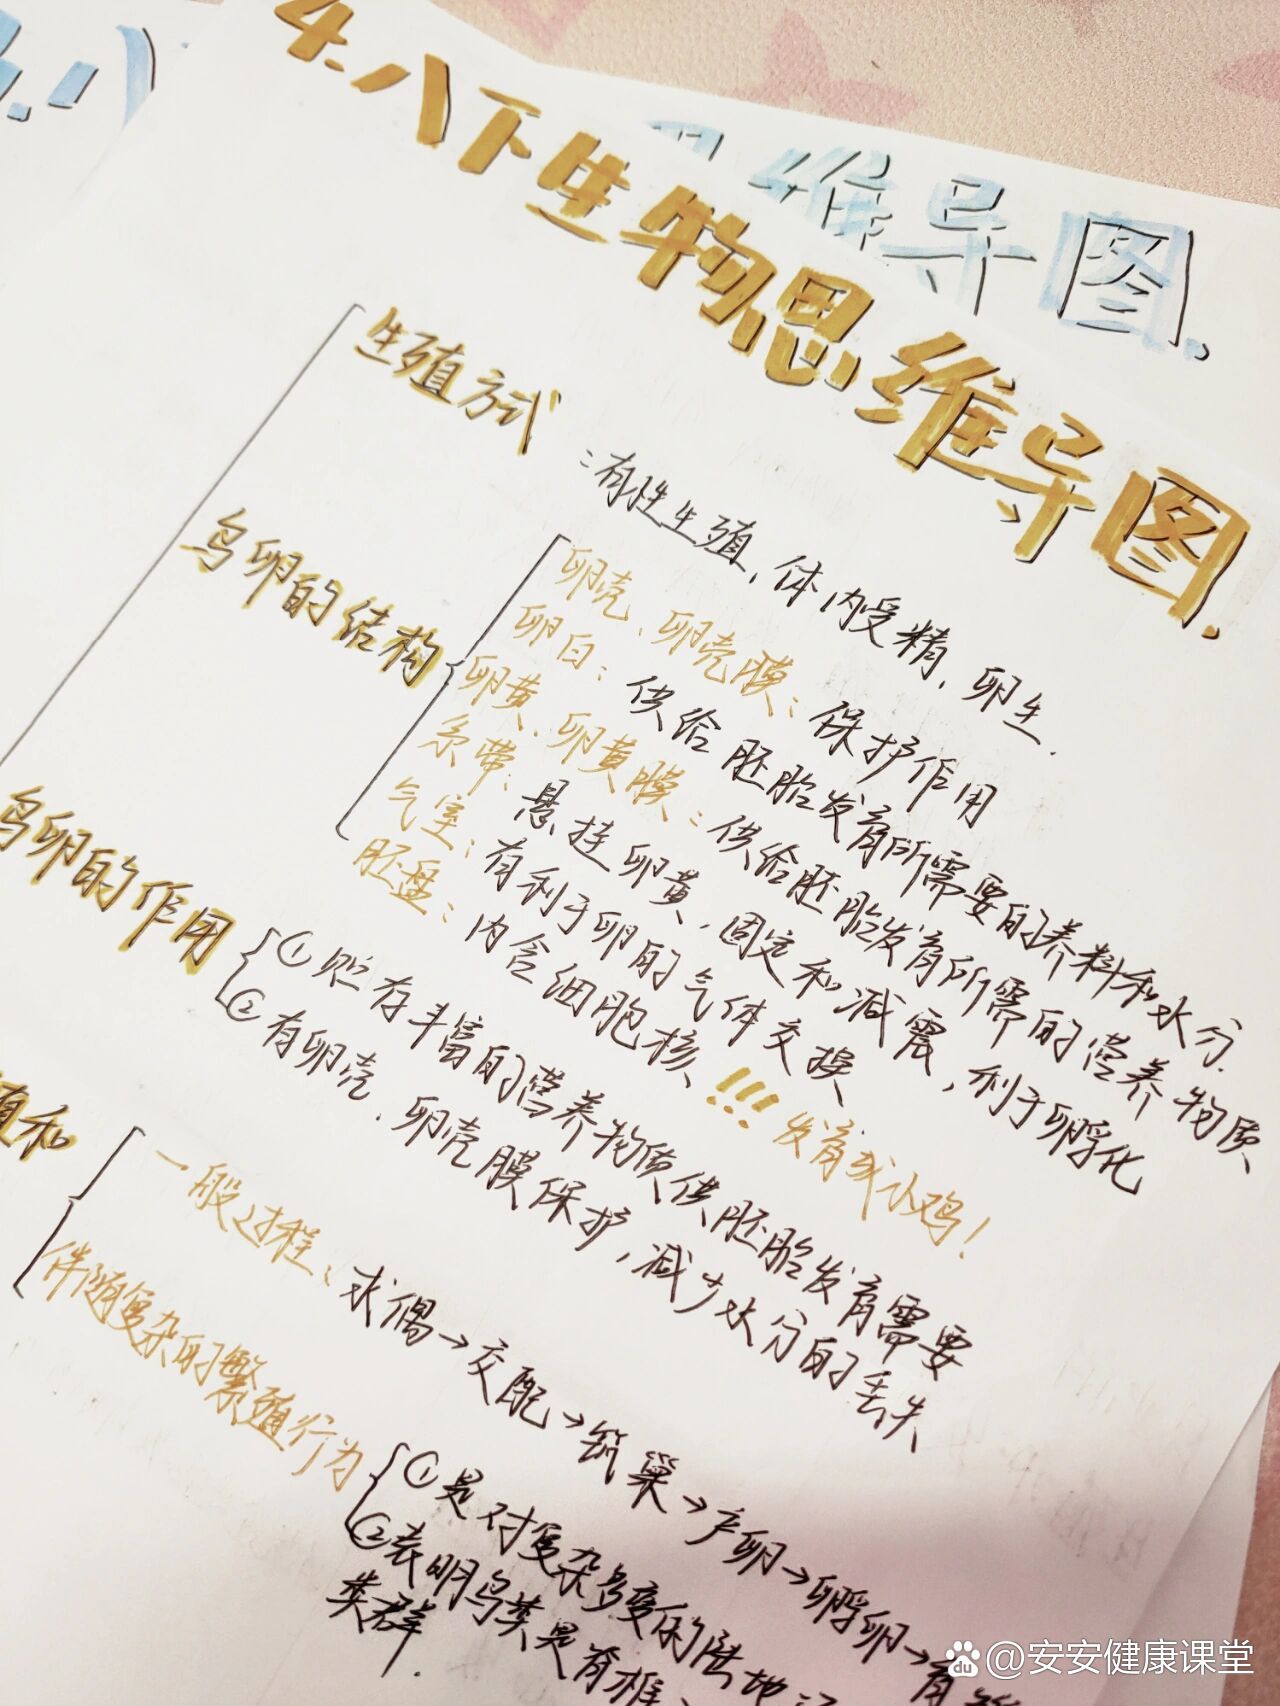 维导图.
4.八下生物思维导图.
生殖方式：有性生殖、体内受精、卵生.
鸟卵的结构
卵壳、卵壳膜：保护作用
卵白：供给胚胎发育所需要的养料和水分.
卵黄、卵黄膜：供给胚胎发育所需的营养物质
系带：悬挂卵黄，固定和减震，利于孵化
气室：有利于卵的气体交换
胚盘：内含细胞核!!!发育成小鸡!
鸟卵的作用
①贮存丰富的营养物质供胚胎发育需要
②有卵壳、卵壳膜保护，减少水分的丢失
殖和
一般过程：求偶→交配→筑巢→产卵→孵卵→育
伴随复杂的繁殖行为
①是对复杂多变的陆地
②表明鸟类是脊椎
类群.
@安安健康课堂